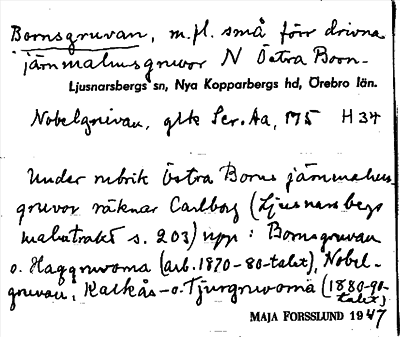 Bornsgruvan, m.fl. små förr drivna
järnmalmsgruvor N Östra Born-
Ljusnarsbergs sn, Nya Kopparbergs hd, Örebro län.
Nobelgruvan, gtk Ser. Aa, 175 H 34
Under rubrik Östra Borns järnmalms-
gruvor räknar Carlborg (Ljusnarsbergs
malmtrakt s. 203) upp: Bornsgruvan
o. Haggruvorna (arb. 1870-80-talet), Nobel-
gruvan, Kalkås- o. Tjurgruvorna (1880-90-
talet)
MAJA FORSSLUND 1947